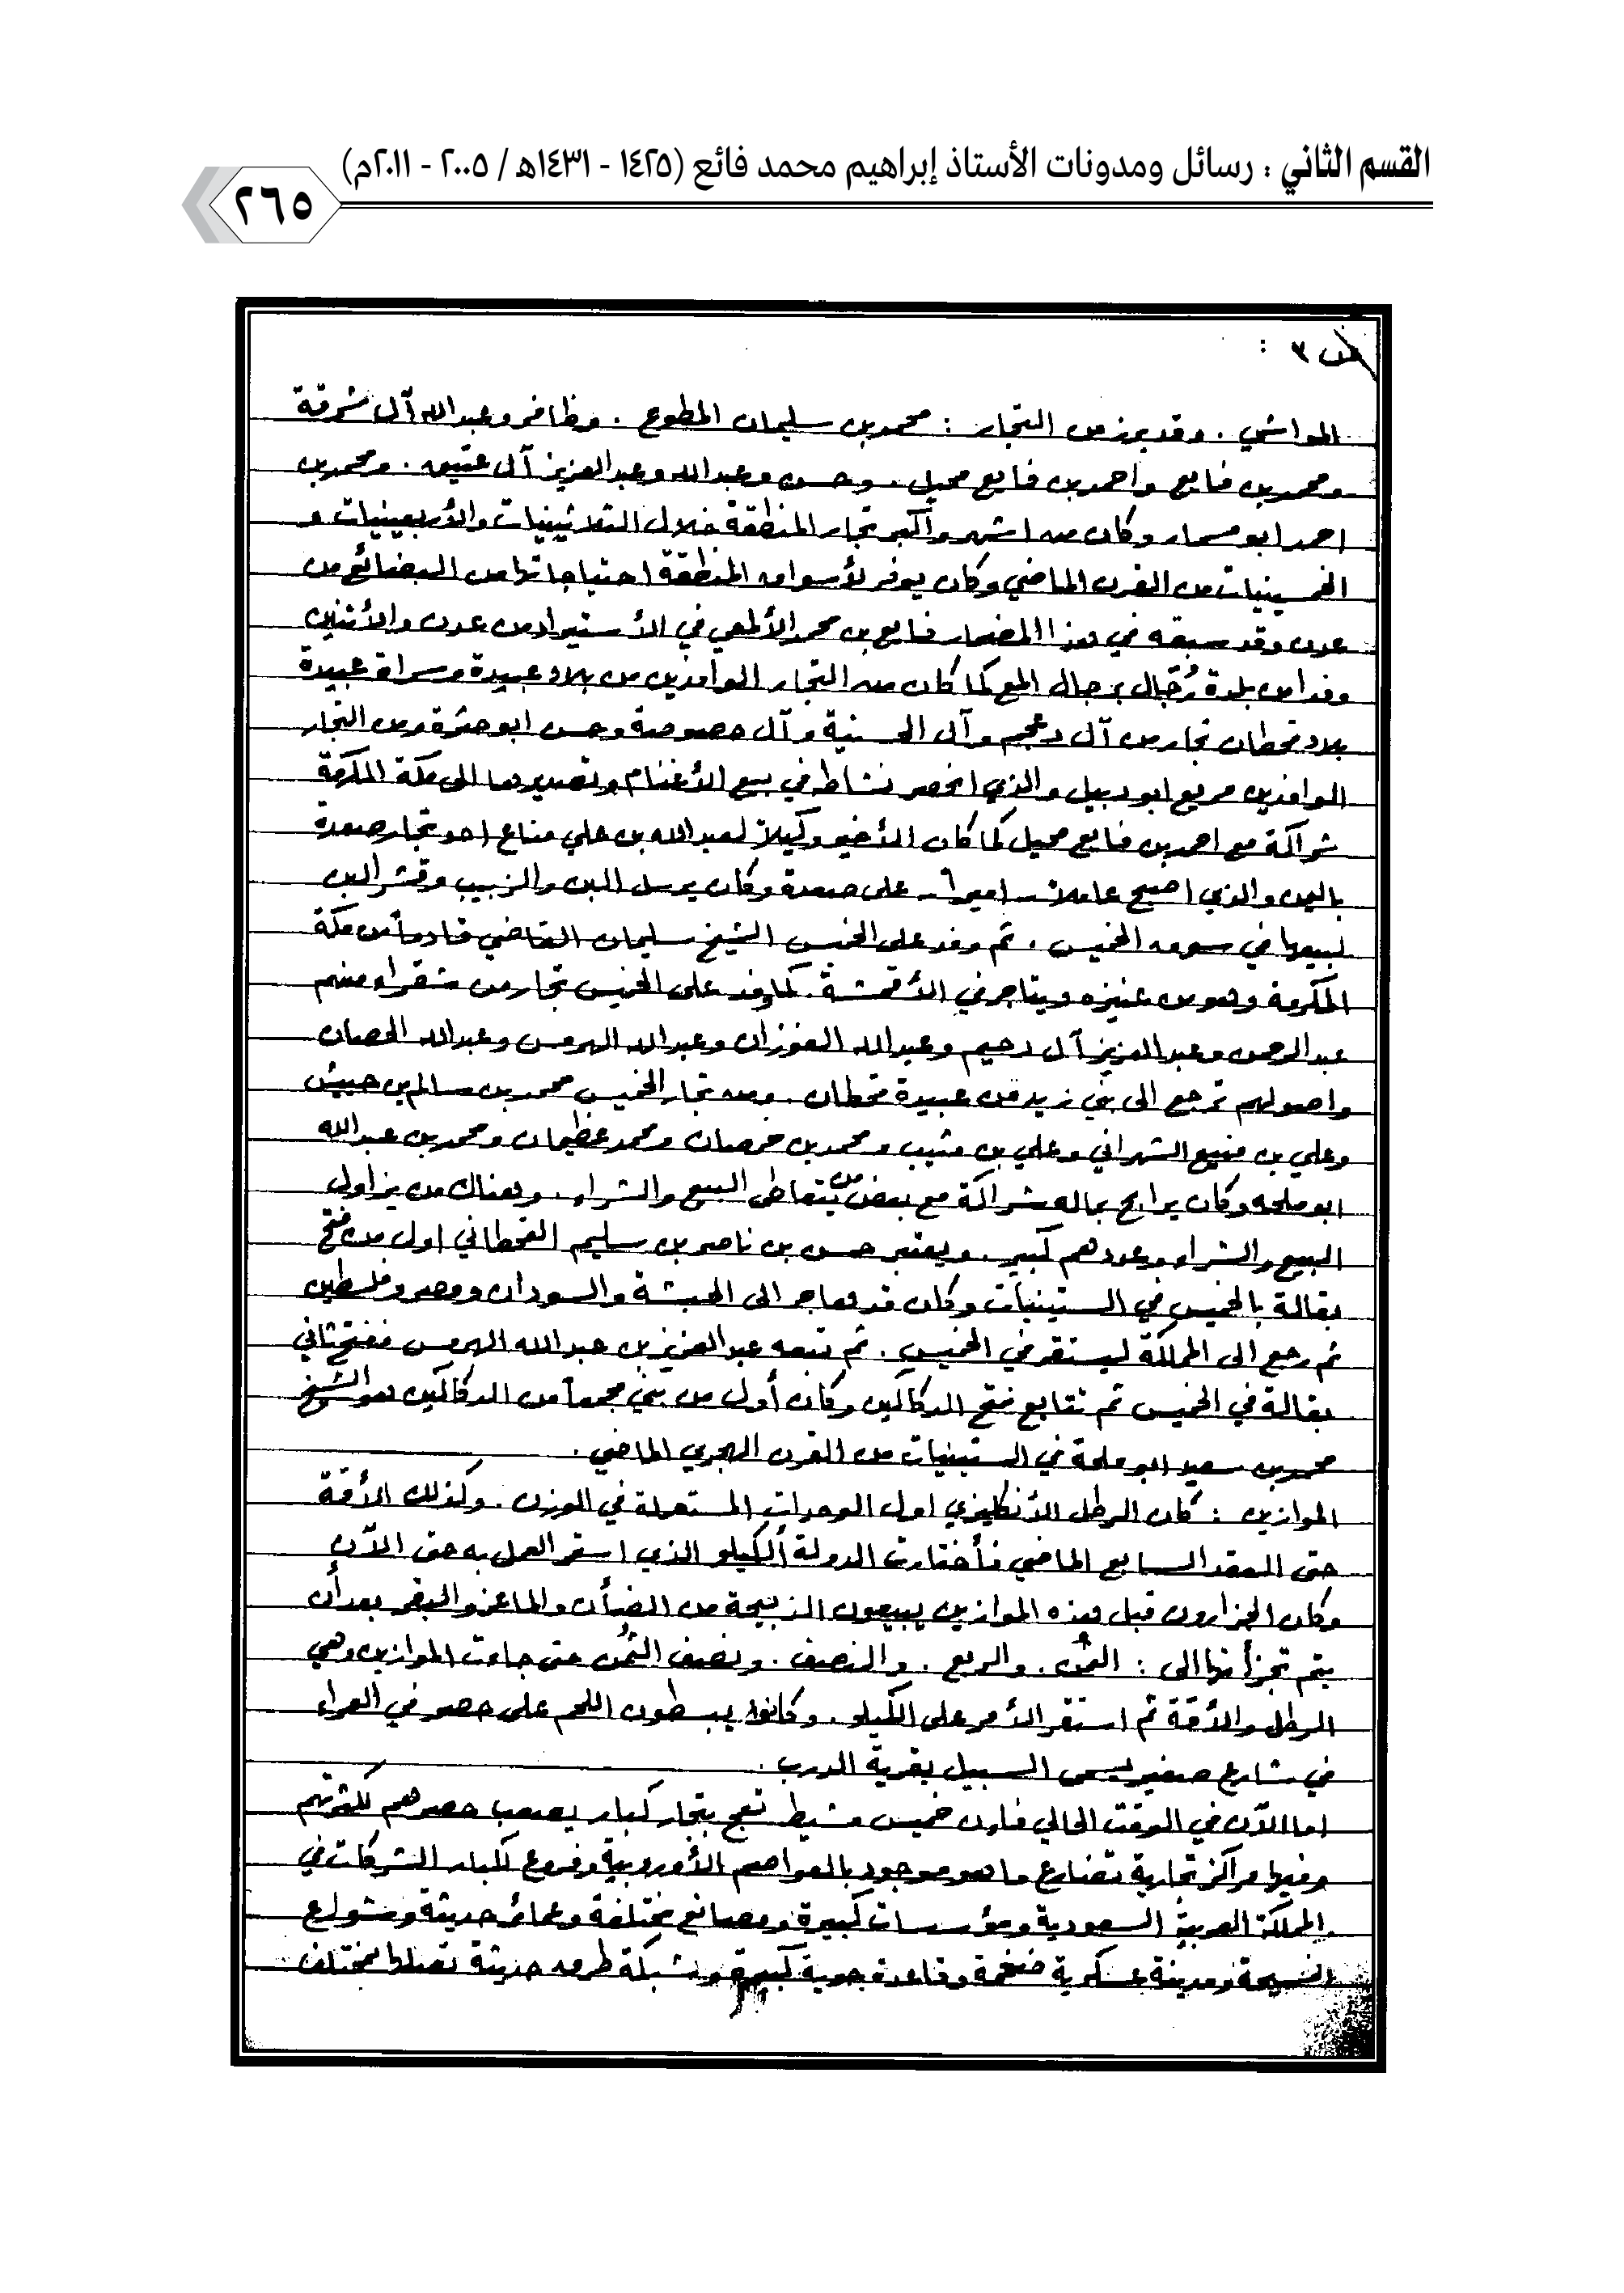 القسم الثاني : رسائل ومدونات الأستاذ إبراهيم محمد فائع (١٤٢٥ - ١٤٣١هـ / ٢٠٠٥ - ٢٠١١م)
٢٦٥
ص ٣ :
المواشي . وقد برز من التجار : محمد بن سليمان المطوع . وظافر وعبدالله آل مشرقة
ومحمد بن فايع واحمد بن فايع محيل . وحسن وعبدالله وعبدالعزيز آل عتيق . ومحمد بن
احمد ابو مسمار وكان من اشهر وأكبر تجار المنطقة خلال الثلاثينيات والأربعينيات و
الخمسينيات من القرن الماضي وكان يوفر لأسواق المنطقة احتياجاتها من البضائع من
عدن وقد سبقه في هذا المضمار فايع بن محمد الألمعي في الأستيراد من عدن والأثنين
وفدا من بلدة رُجال برجال المع كما كان من التجار الوافدين من بلاد عبيدة وسراة عبيدة
بلاد قحطان تجار من آل دعجم وآل الحسنية وآل حصوصة وحسن ابو حثرة ومن التجار
الوافدين مريع ابو دبيل والذي انحصر نشاطه في بيع الأغنام وتصديرها الى مكة المكرمة
شراكة مع احمد بن فايع محيل كما كان الأخير وكيلاً لعبدالله بن علي مناع احد تجار صعدة
باليمن والذي اصبح عاملاً - اميراً - على صعدة وكان يرسل البن والزبيب وقشر البن
لبيعها في سوق الخميس . ثم وفد على الخميس الشيخ سليمان القاضي قادماً من مكة
المكرمة وهو من عنيزه ويتاجر في الأقمشة . كما وفد على الخميس تجار من شقراء منهم
عبدالرحمن وعبدالعزيز آل دحيم وعبدالله الفوزان وعبدالله الهرمس وعبدالله الحصان
واصولهم ترجع الى بني زيد من عبيدة قحطان . ومن تجار الخميس محمد بن سالم بن حبيش
وعلي بن منيع الشهراني وعلي بن مثيب ومحمد بن خرصان ومحمد عظيمان ومحمد بن عبدالله
ابو ملحه وكان يرابح بماله شراكة مع بعض من يتعاطى البيع والشراء . وهناك من يزاول
البيع والشراء وعددهم كبير . ويعتبر حسن بن ناصر بن سليم القحطاني اول من فتح
بقالة بالخميس في الستينيات وكان قد هاجر الى الحبشة والسودان ومصر وفلسطين
ثم رجع الى المملكة ليستقر في الخميس . ثم تبعه عبدالعزيز بن عبدالله الهرمس ففتح ثاني
بقالة في الخميس ثم تتابع فتح الدكاكين وكان أول من بنى مجمعاً من الدكاكين هو الشيخ
محمد بن سعيد ابو ملحة في الستينيات من القرن الهجري الماضي .
الموازين : كان الرطل الأنكليزي اول الوحدات المستعملة في الوزن . وكذلك الأقة
حتى العقد السابع الماضي فأختارت الدولة الكيلو الذي استمر العمل به حتى الآن
وكان الجزارون قبل هذه الموازين يبيعون الذبيحة من الضأن والماعز والبقر بعد أن
يتم تجزأتها الى : الثمن . والربع . والنصف . ونصف الثُمن حتى جاءت الموازين وهي
الرطل والأقة ثم استقر الأمر على الكيلو . وكانوا يبسطون اللحم على حصر في العراء
في شارع صغير يسمى السبيل بقرية الدرب .
اما الآن في الوقت الحالي فإن خميس مشيط تعج بتجار كبار يصعب حصرهم لكثرتهم
وفيها مراكز تجارية تضارع ما هو موجود بالعواصم الأوروبية وفروع لكبار الشركات في
المملكة العربية السعودية ومؤسسات كبيرة ومصانع مختلفة وعمائر حديثة وشوارع
فسيحة ومدينة عسكرية ضخمة وقاعدة جوية كبيرة وشبكة طرق حديثة تصلها بمختلف